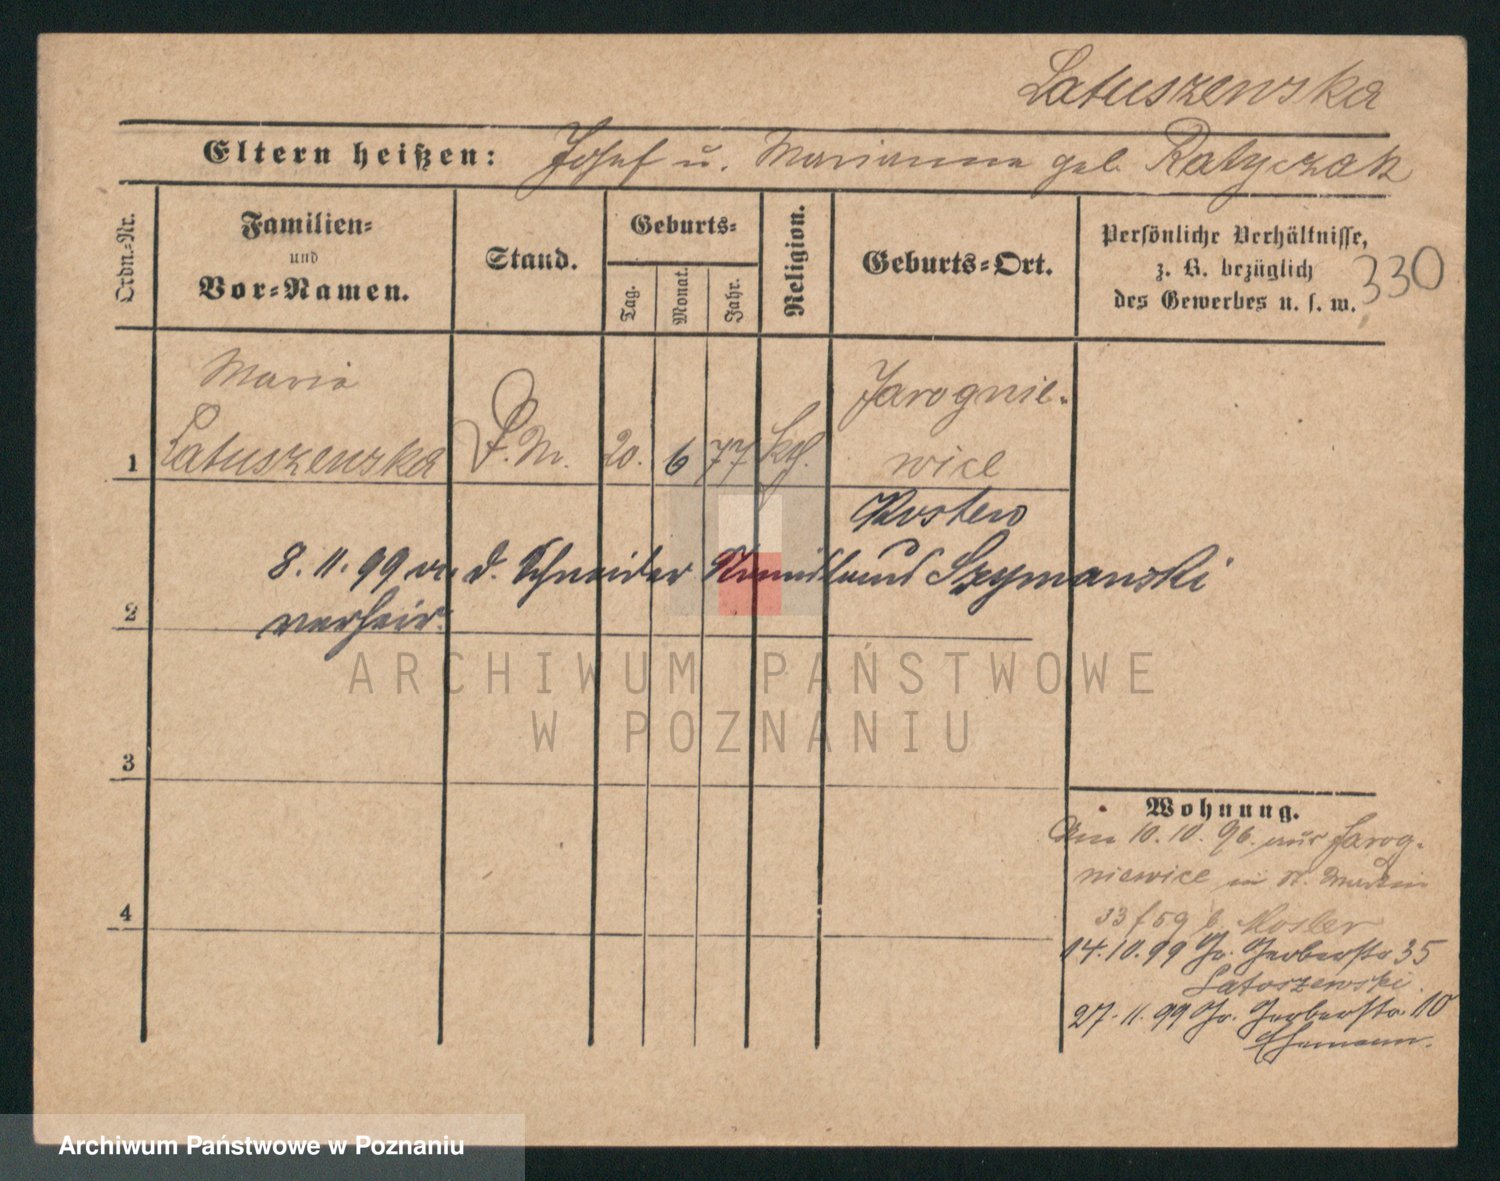 Latuszewska
Eltern heißen: Josef u. Marianne geb. Ratyczak
Ordn.-Nr.
Familien-
und
Vor-Namen.
Stand.
Geburts-
Tag.
Monat.
Jahr.
Religion.
Geburts-Ort.
Persönliche Verhältnisse,
z. B. bezüglich
des Gewerbes u. s. w.
330
Maria Jarognie-
1 Latuszewska D. M. 20. 6 77 kth. wice
Kosten
8. 11. 99 m. d. Schneider Szymanski
2 verheir.
ARCHIWUM PAŃSTWOWE
W POZNANIU
3
Wohnung.
Am 10. 10. 96. aus Jarog-
niewice in St. Martin
4
33 f 59 b. Mosler
14. 10. 99 Gr. Gerberstr 35
Latoszewski.
27. 11. 99 Gr. Gerberstr. 10
Ehemann.
Archiwum Państwowe w Poznaniu